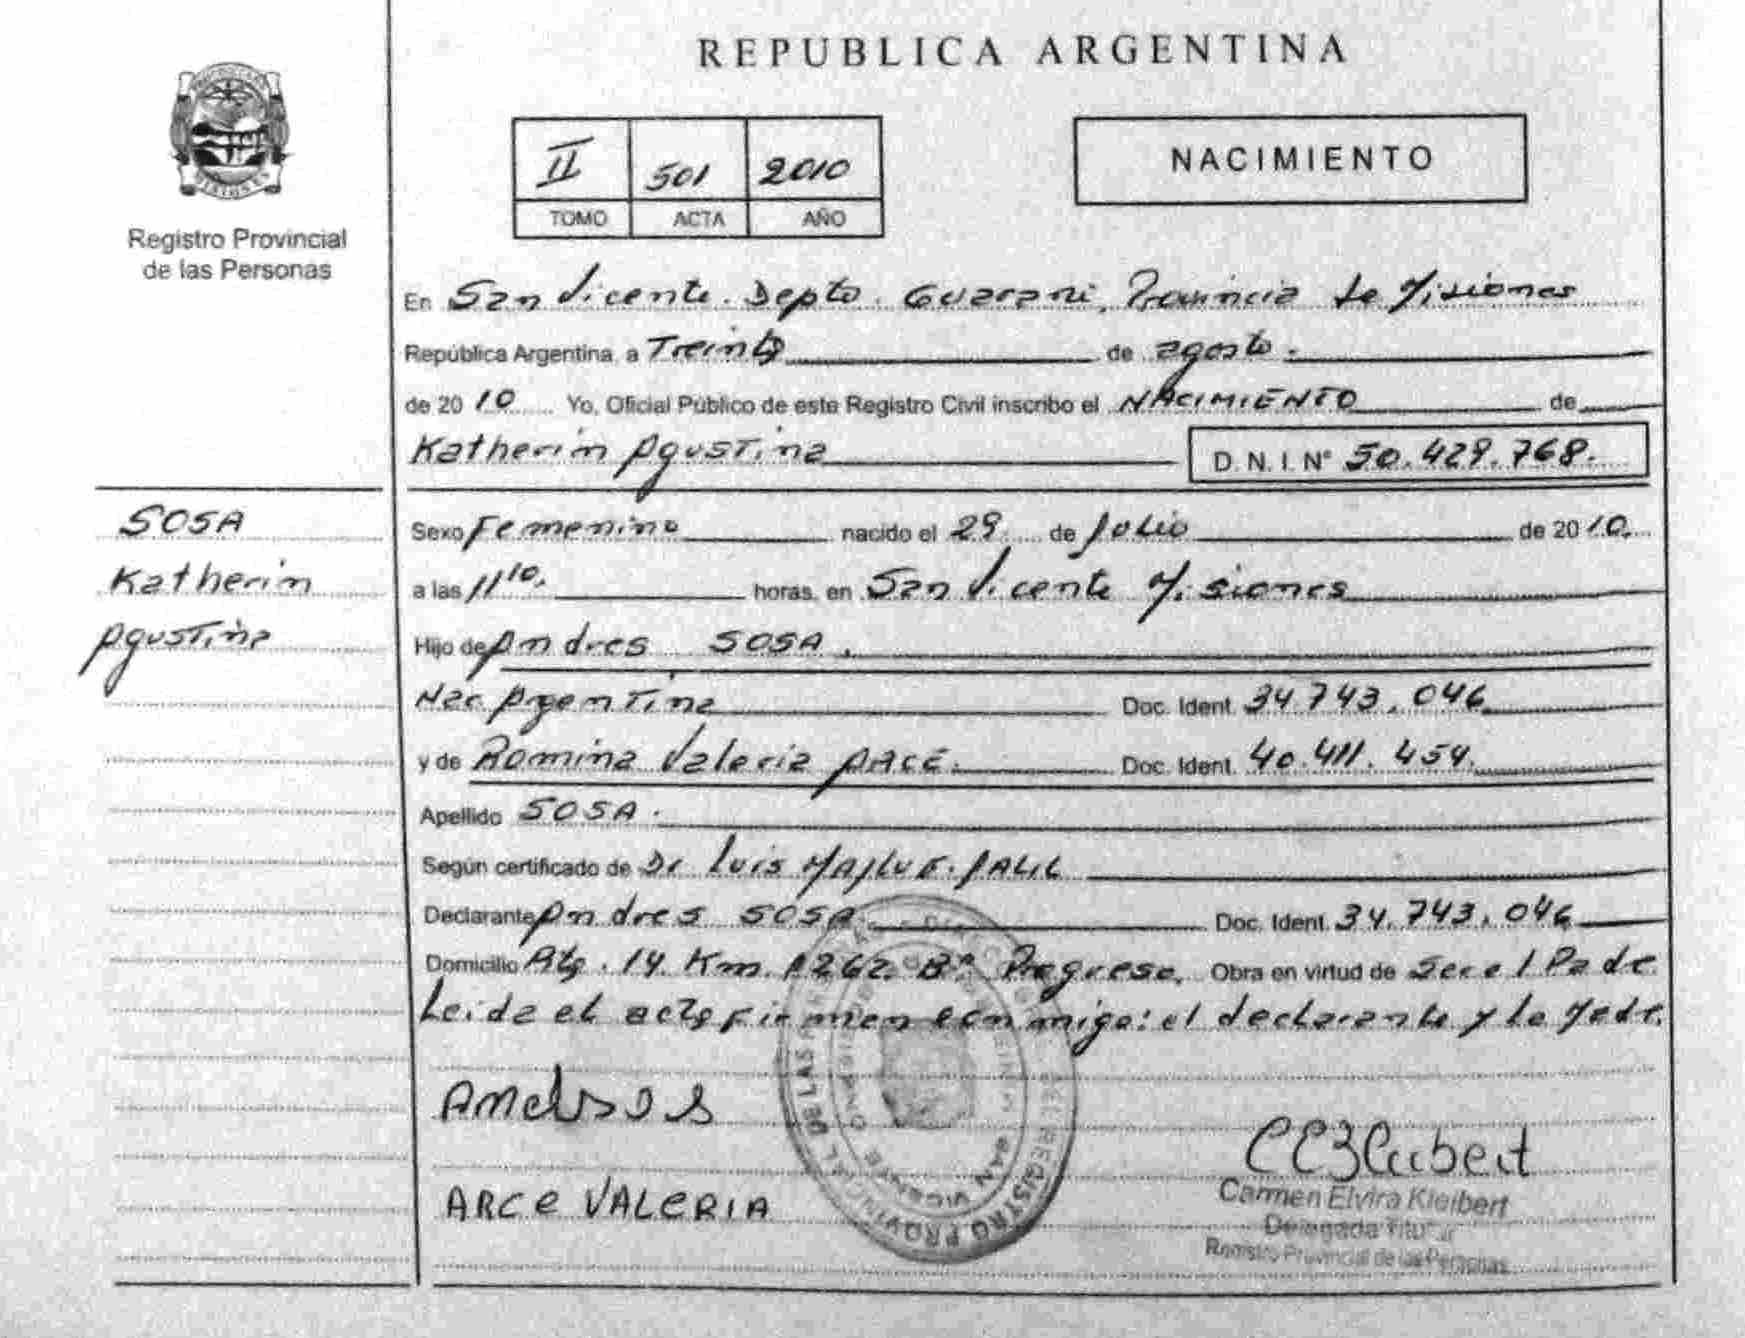 REPUBLICA ARGENTINA
II 501 2010
TOMO ACTA AÑO
NACIMIENTO
Registro Provincial
de las Personas
En San Vicente. Depto. Guarani, Provincia de Misiones
República Argentina, a Treinta de agosto.
de 2010 Yo, Oficial Público de este Registro Civil inscribo el NACIMIENTO de
Katherin Agustina D. N. I. N° 50.429.768.
SOSA
Katherin
Agustina
Sexo Femenino nacido el 29 de Julio de 2010.
a las 11 10. horas, en San Vicente Misiones
Hijo de Andres SOSA.
Nac Argentina Doc. Ident. 34.743.046
y de Romina Valeria ARCE. Doc. Ident. 40.411.454.
Apellido SOSA.
Según certificado de Dr Luis
Declarante Andres SOSA Doc. Ident. 34.743.046
Domicilio Km. 1262 B° Progreso. Obra en virtud de Ser el Padre
Leida el acta firman conmigo: el declarante y la Madre.
ARCE VALERIA
Carmen Elvira Kleibert
Delegada Titular
Registro Provincial de las Personas